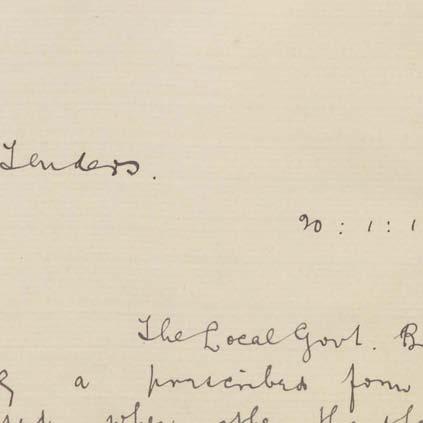 Tenders.
20 : 1 : 1
The Local Govt. B
a prescribed form
when the